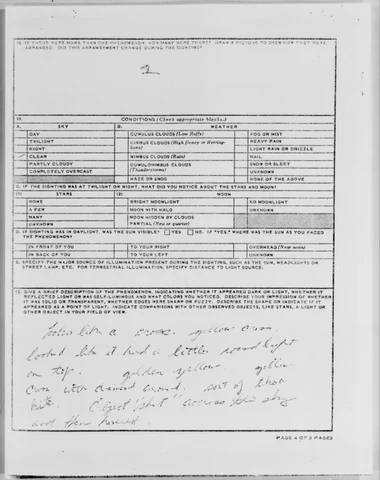 10. IF THERE WERE MORE THAN ONE PHENOMENON, HOW MANY WERE THERE? DRAW A PICTURE TO SHOW HOW THEY WERE
ARRANGED. DID THIS ARRANGEMENT CHANGE DURING THE SIGHTING?
2
11. CONDITIONS (Check appropriate blocks.)
A. SKY B. WEATHER
DAY CUMULUS CLOUDS (Low fluffy) FOG OR MIST
TWILIGHT CIRRUS CLOUDS (High fleecy or Herring-bone) HEAVY RAIN
NIGHT LIGHT RAIN OR DRIZZLE
CLEAR NIMBUS CLOUDS (Rain) HAIL
PARTLY CLOUDY CUMULONIMBUS CLOUDS SNOW OR SLEET
COMPLETELY OVERCAST (Thunderstorms) UNKNOWN
HAZE OR SMOG NONE OF THE ABOVE
C. IF THE SIGHTING WAS AT TWILIGHT OR NIGHT, WHAT DID YOU NOTICE ABOUT THE STARS AND MOON?
(1) STARS (2) MOON
NONE BRIGHT MOONLIGHT NO MOONLIGHT
A FEW MOON WITH HALO UNKNOWN
MANY MOON HIDDEN BY CLOUDS
UNKNOWN PARTIAL (New or quarter)
D. IF SIGHTING WAS IN DAYLIGHT, WAS THE SUN VISIBLE? YES NO. IF "YES," WHERE WAS THE SUN AS YOU FACED
THE PHENOMENON?
IN FRONT OF YOU TO YOUR RIGHT OVERHEAD (Near noon)
IN BACK OF YOU TO YOUR LEFT UNKNOWN
E. SPECIFY THE MAJOR SOURCE OF ILLUMINATION PRESENT DURING THE SIGHTING, SUCH AS THE SUN, HEADLIGHTS OR
STREET LAMP, ETC. FOR TERRESTRIAL ILLUMINATION, SPECIFY DISTANCE TO LIGHT SOURCE.
12. GIVE A BRIEF DESCRIPTION OF THE PHENOMENON, INDICATING WHETHER IT APPEARED DARK OR LIGHT, WHETHER IT
REFLECTED LIGHT OR WAS SELF-LUMINOUS AND WHAT COLORS YOU NOTICED. DESCRIBE YOUR IMPRESSION OF WHETHER
IT WAS SOLID OR TRANSPARENT, WHETHER EDGES WERE SHARP OR FUZZY. DESCRIBE THE SHAPE OR INDICATE IF IT
APPEARED AS A POINT OF LIGHT. INDICATE COMPARISONS WITH OTHER OBSERVED OBJECTS, LIKE STARS, A LIGHT OR
OTHER OBJECT IN YOUR FIELD OF VIEW.
like a cross. yellow cross.
looked like it had a little round light
on top. golden yellow. yellow
cross with around. sort of
like. Object "shot" across the sky
and then hovered.
PAGE 4 OF 5 PAGES